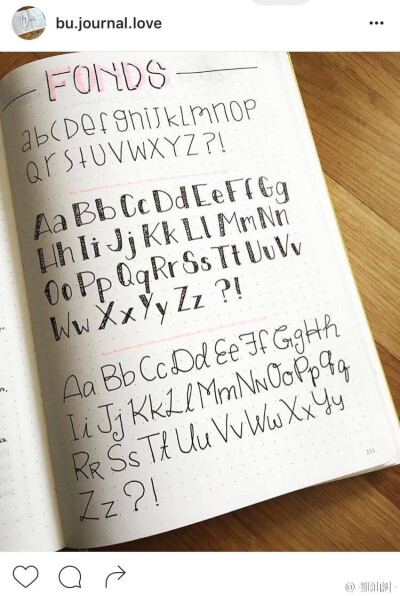 bu.journal.love
FONDS
abCDefghijkLmnop
QrStUVWXYZ?!
Aa Bb Cc Dd Ee Ff Gg
Hh Ii Jj Kk Ll Mm Nn
Oo Pp Qq Rr Ss Tt Uu Vv
Ww Xx Yy Zz ?!
Aa Bb Cc Dd Ee Ff Gg Hh
Ii Jj Kk Ll Mm Nn Oo Pp Qq
Rr Ss Tt Uu Vv Ww Xx Yy
Zz ?!